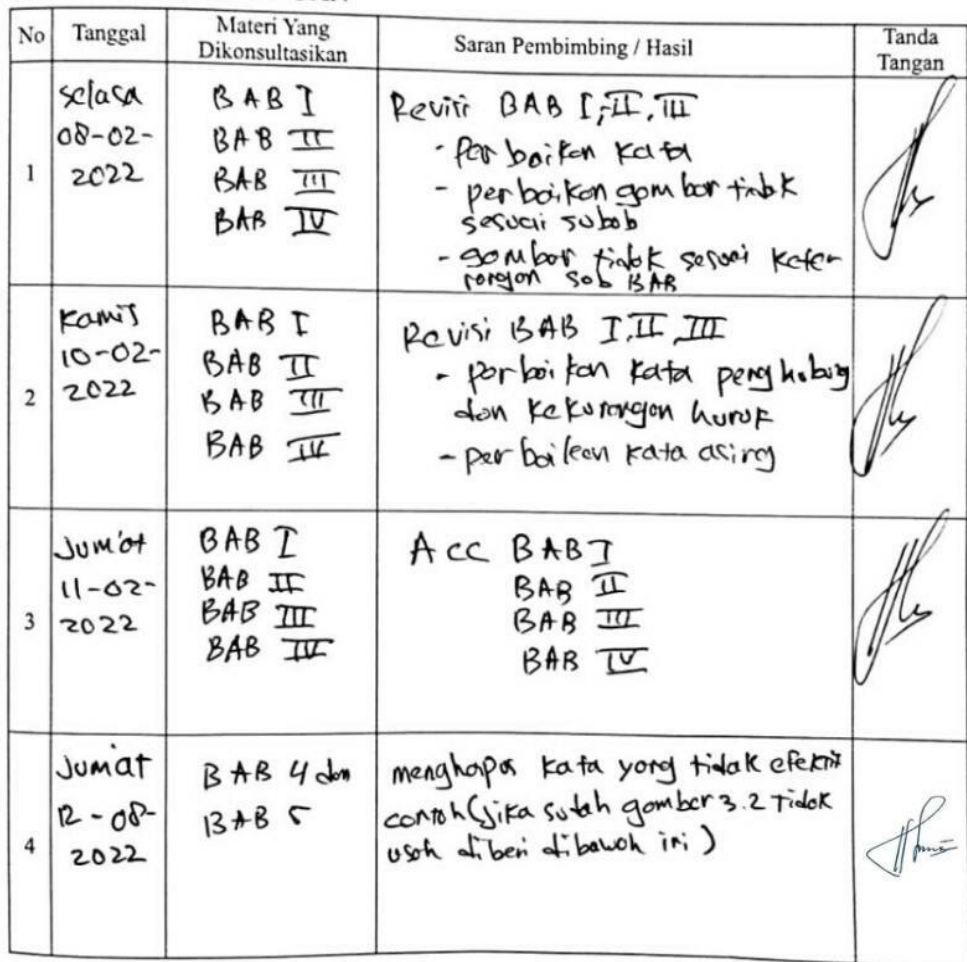 No Tanggal Materi Yang Dikonsultasikan Saran Pembimbing / Hasil Tanda Tangan
1
Selasa
08-02-
2022
BAB I
BAB II
BAB III
BAB IV
Revisi BAB I, II, III
- Perbaikan kata
- perbaikan gambar tidak
sesuai subab
- gambar tidak sesuai keter
rangan sub BAB
2
Kamis
10-02-
2022
BAB I
BAB II
BAB III
BAB IV
Revisi BAB I, II, III
- perbaikan kata penghubung
dan kekurangan huruf
- perbaikan kata asing
3
Jum'at
11-02-
2022
BAB I
BAB II
BAB III
BAB IV
Acc BAB I
BAB II
BAB III
BAB IV
4
Jumat
12-08-
2022
BAB 4 dan
BAB 5
menghapus kata yang tidak efektif
contoh (jika sudah gambar 3.2 tidak
usah diberi dibawah ini)